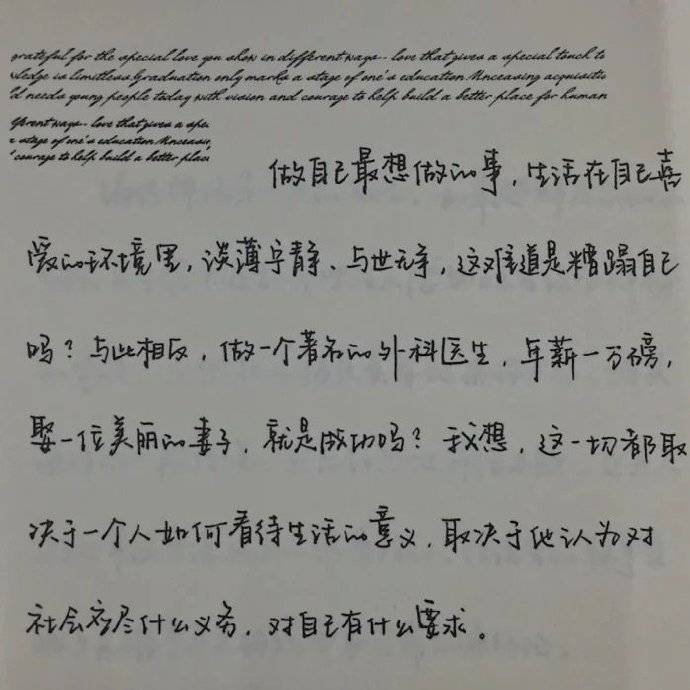 grateful for the special love you show in different ways - love that gives a special touch to
ledge is limitless. Graduation only marks a stage of one's education. Unceasing acquisitio
ld needs young people today with vision and courage to help build a better place for human
fferent ways - love that gives a spec
a stage of one's education. Unceasin
courage to help build a better place
做自己最想做的事，生活在自己喜
爱的环境里，淡薄宁静、与世无争，这难道是糟蹋自己
吗？与此相反，做一个著名的外科医生，年薪一万磅，
娶一位美丽的妻子，就是成功吗？我想，这一切都取
决于一个人如何看待生活的意义，取决于他认为对
社会应尽什么义务，对自己有什么要求。